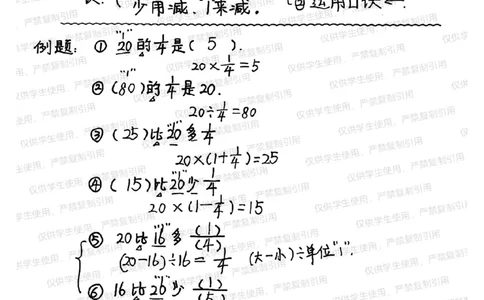 少用减.「1来减.
例题: ① 20的1/4是( 5 ).
"1"
20×1/4=5
② (80)的1/4是20.
"1"
20÷1/4=80
③ (25)比20多1/4
"1"
20×(1+1/4)=25
④ ( 15)比20少1/4
"1"
20×(1-1/4)=15
⑤ 20比16多(1)/(4)
"1"
(20-16)÷16=1/4 (大-小)÷单位"1".
⑥ 16比20少(1)/(5)
"1"
仅供学生使用,严禁复制引用